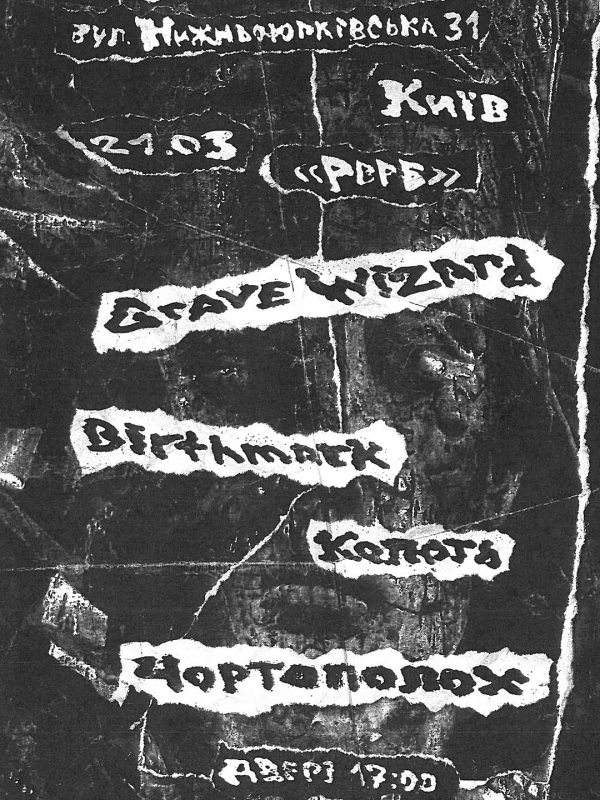 вул. Нижньоюрківська 31
Київ
21.03
Grave Wizard
Birthmark
Копоть
Чортополох
Двері 17:00